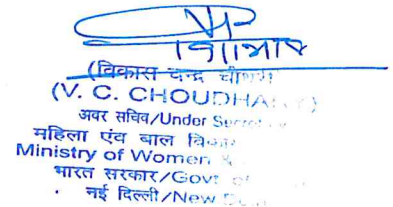 (विकास चन्द्र चौधरी)
(V. C. CHOUDHA
अवर सचिव/Under
महिला एंव बाल
Ministry of Women &
भारत सरकार/Govt of
नई दिल्ली/New